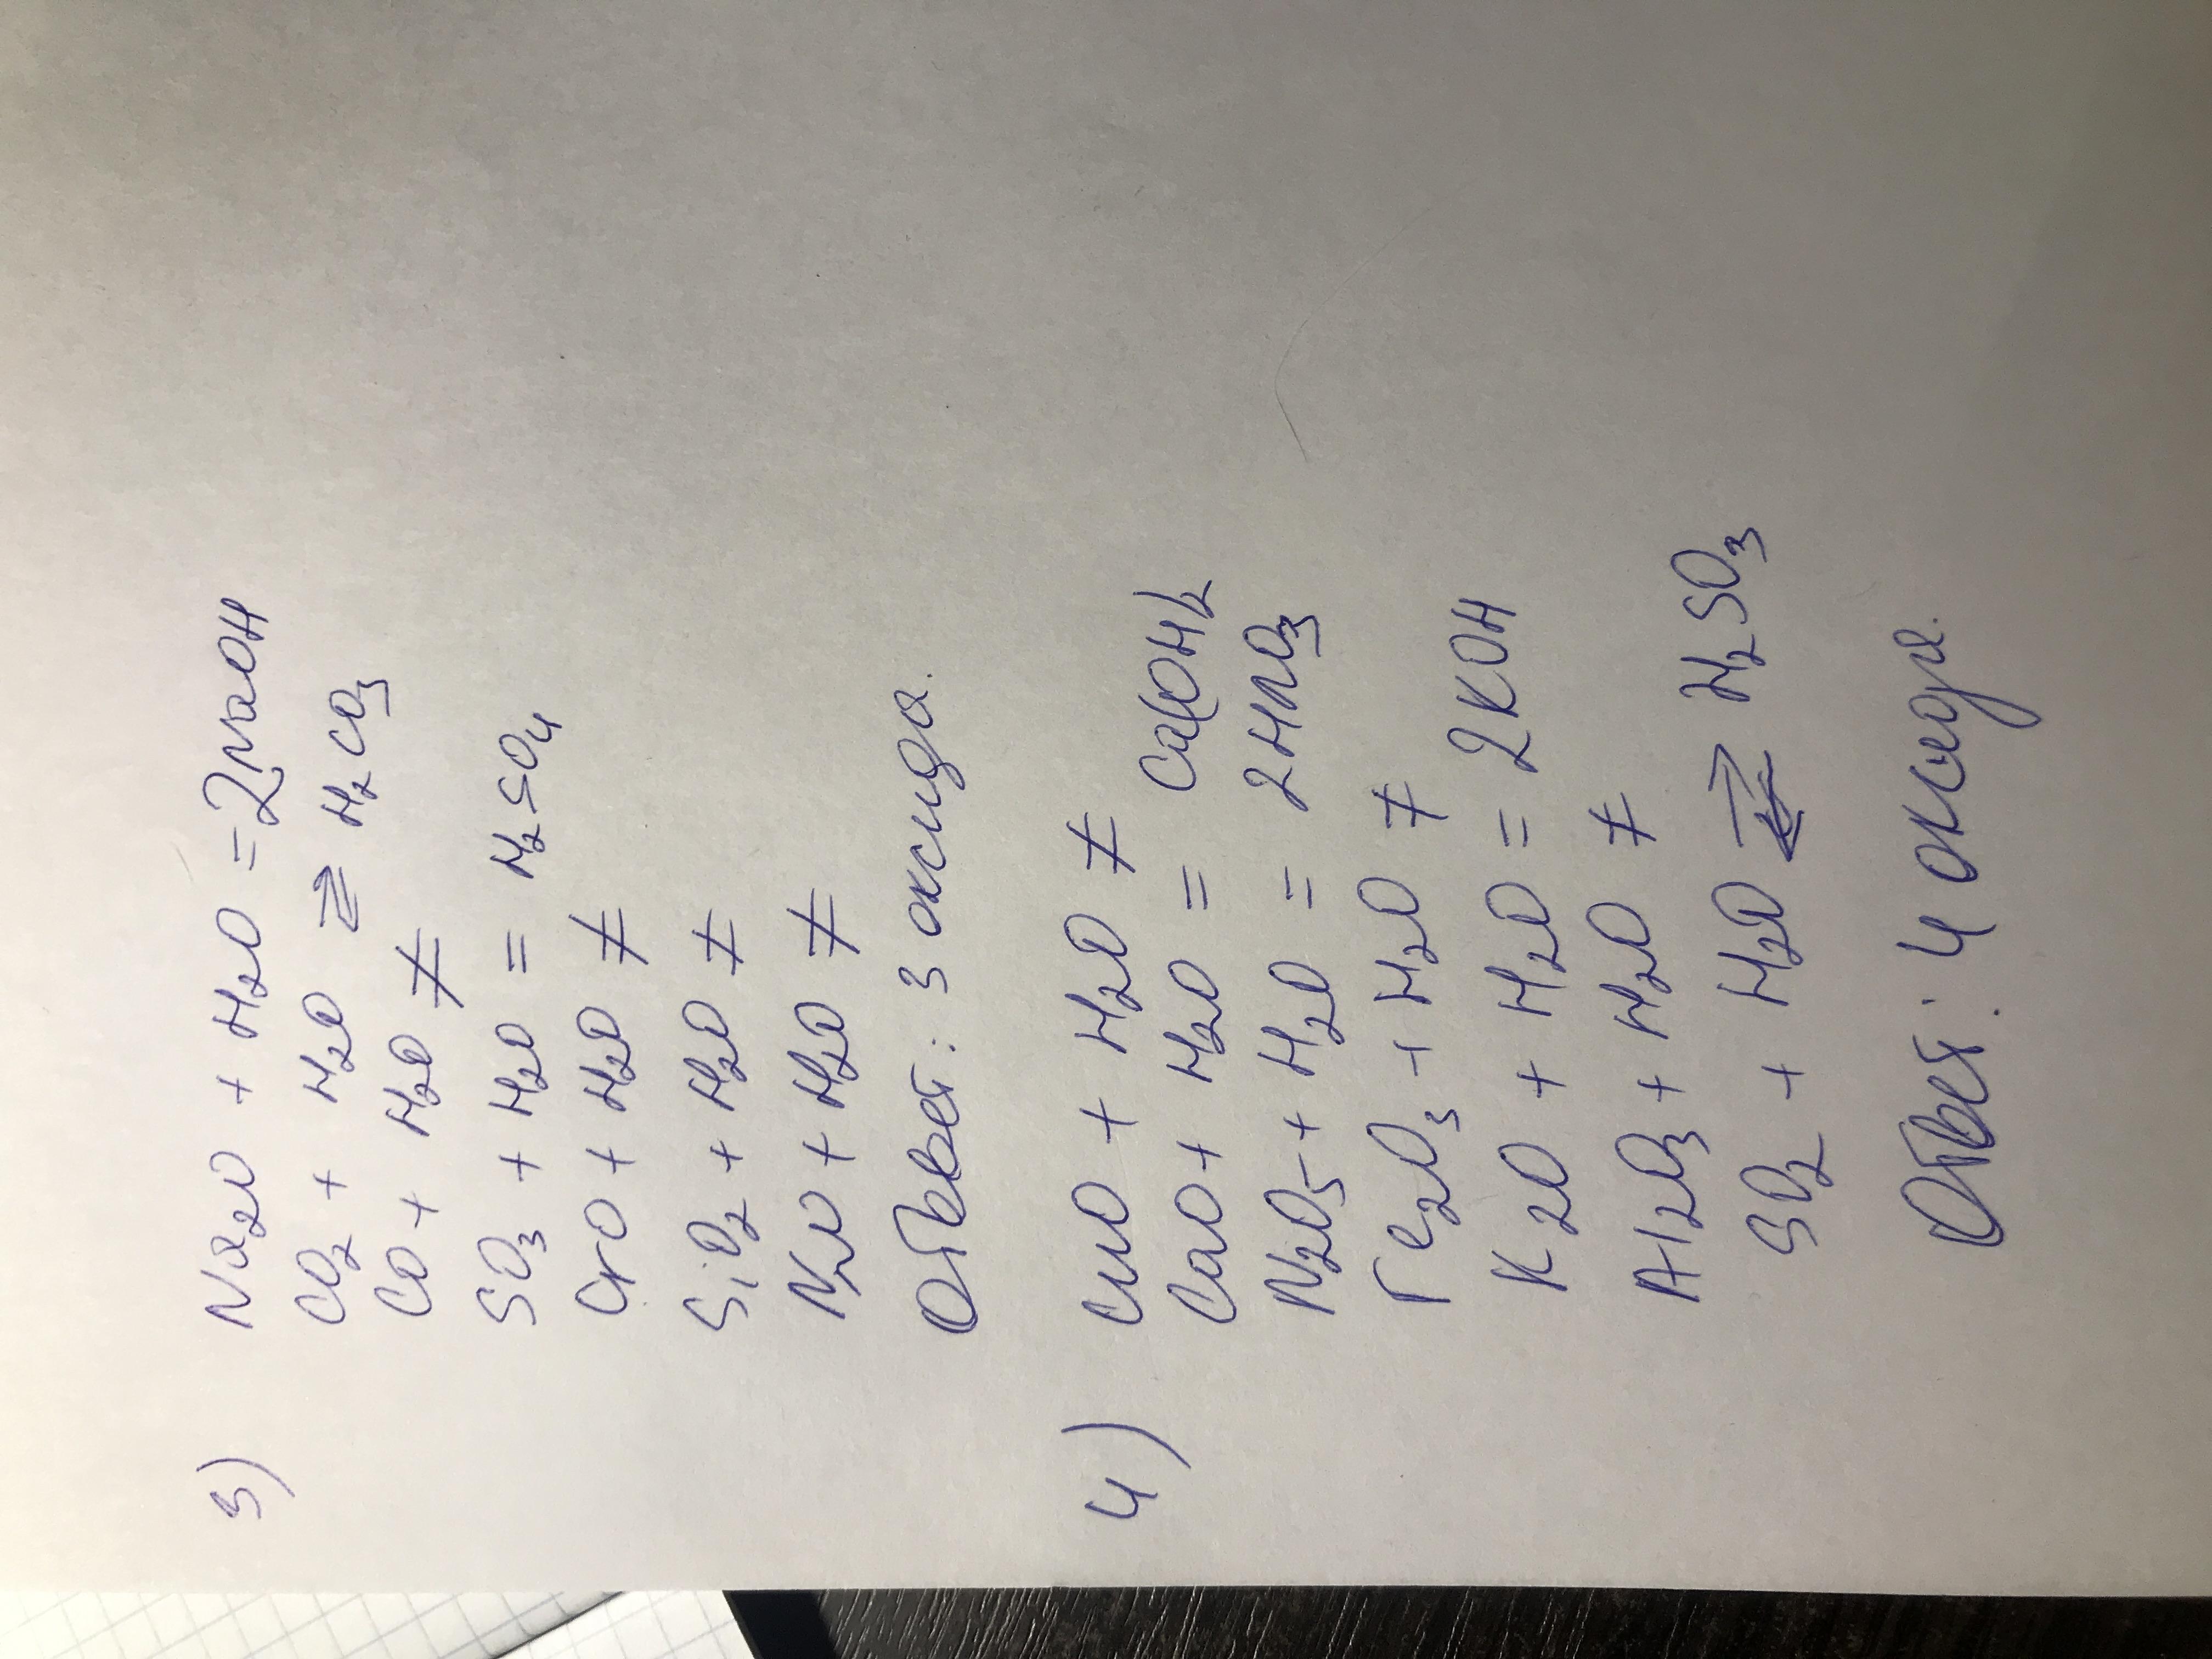 3) Na₂O + H₂O = 2NaOH
CO₂ + H₂O ⇄ H₂CO₃
CO + H₂O ≠
SO₃ + H₂O = H₂SO₄
CrO + H₂O ≠
SiO₂ + H₂O ≠
N₂O + H₂O ≠
Ответ: 3 оксида.
4) CuO + H₂O ≠
CaO + H₂O = Ca(OH)₂
N₂O₅ + H₂O = 2HNO₃
Fe₂O₃ + H₂O ≠
K₂O + H₂O = 2KOH
Al₂O₃ + H₂O ≠
SO₂ + H₂O ⇄ H₂SO₃
Ответ: 4 оксида.